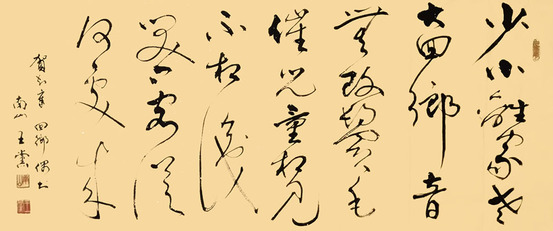 少小離家老
大回鄉音
無改鬢毛
催兒童相見
不相識
笑問客從
何處來
賀知章 回鄉偶書
南山 王